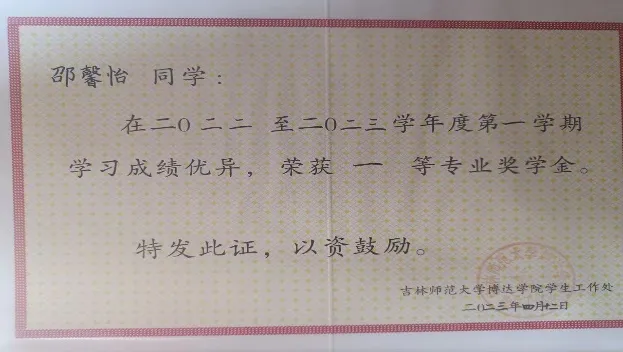 邵馨怡 同学：
在二〇二二 至二〇二三学年度第一学期
学习成绩优异，荣获 一 等专业奖学金。
特发此证，以资鼓励。
吉林师范大学博达学院学生工作处
二〇二三年四月十二日